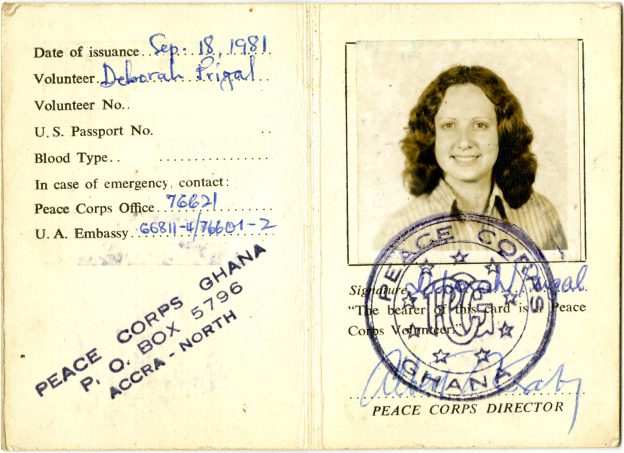 Date of issuance Sep. 18, 1981
Volunteer Deborah Prigal
Volunteer No..
U.S. Passport No. ..
Blood Type..
In case of emergency, contact:
Peace Corps Office 76621
U.A. Embassy 66811-4/76601-2
PEACE CORPS GHANA
P. O. BOX 5796
ACCRA - NORTH
PEACE CORPS
PC
GHANA
Signature Deborah Prigal
"The bearer of this card is a Peace
Corps Volunteer."
PEACE CORPS DIRECTOR